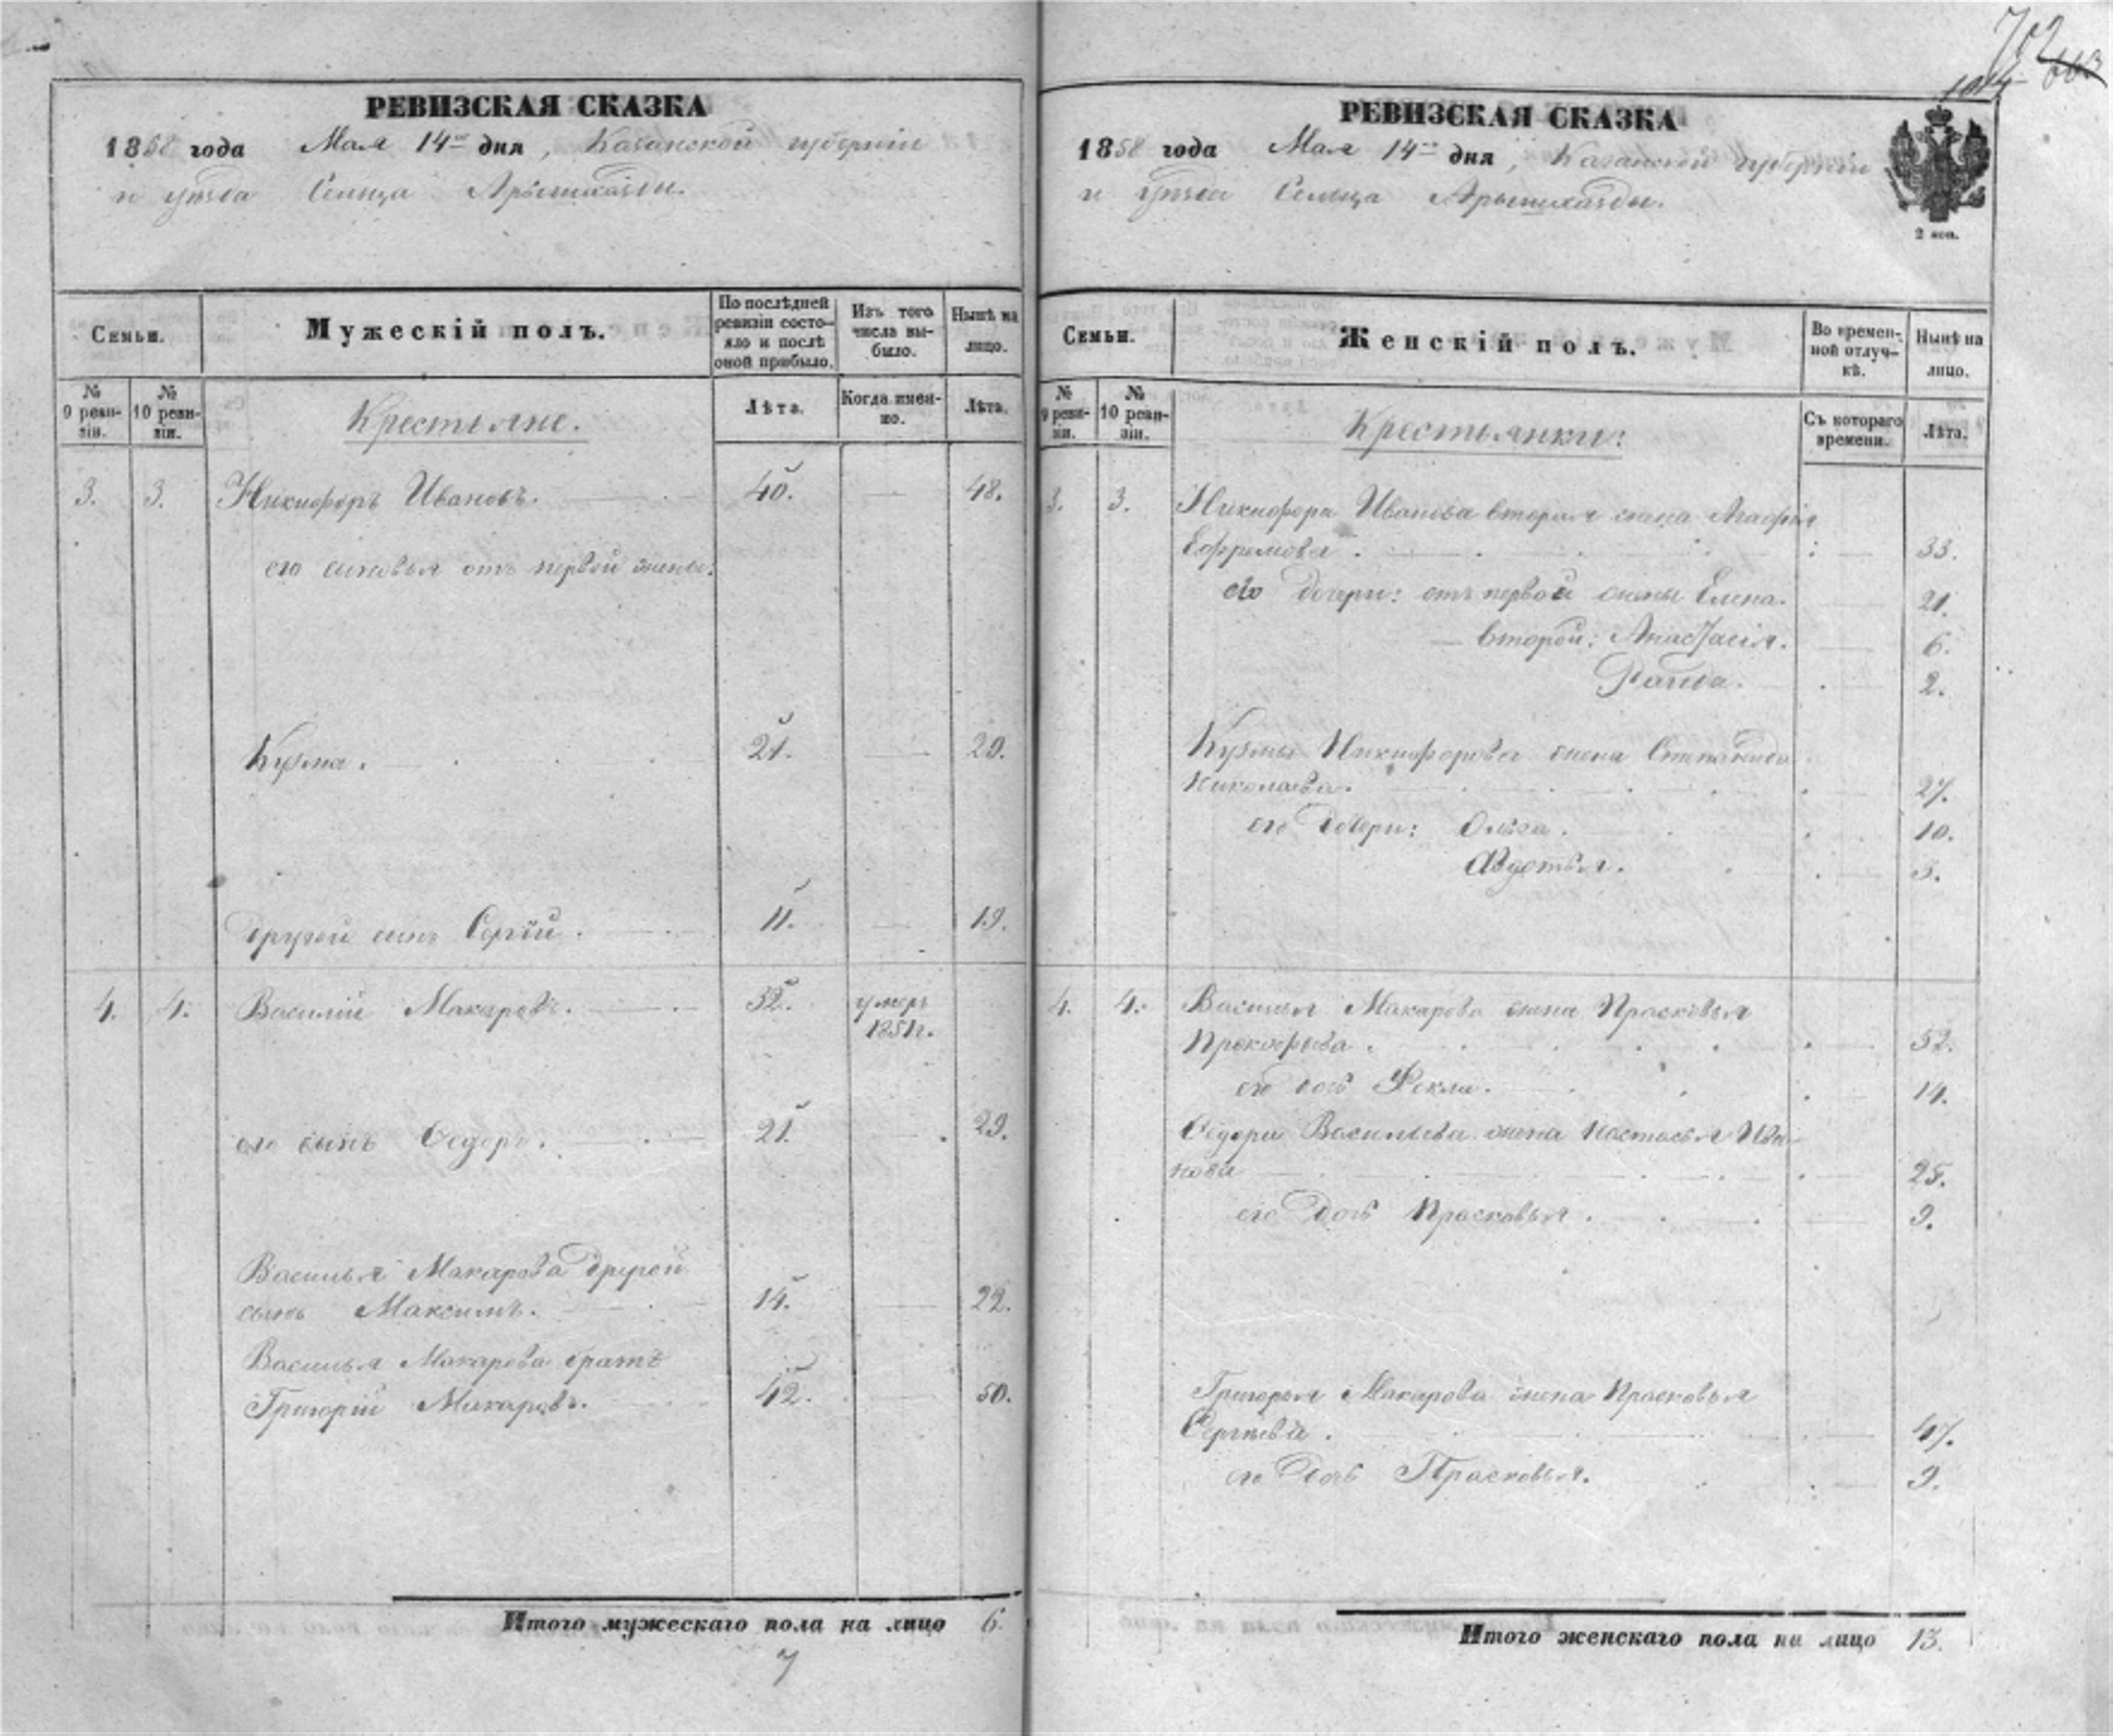 702
1014 663
РЕВИЗСКАЯ СКАЗКА
1858 года Мая 14го дня, Казанской губернiи
и уѣзда Сельца Арышхазды.
Семьи.
Мужескiй полъ.
По послѣдней ревизiи состо-
яло и послѣ
оной прибыло.
Изъ того
числа вы-
было.
Нынѣ на
лицо.
№
9 реви-
зiи.
№
10 реви-
зiи.
Крестьяне.
Лѣта.
Когда имен-
но.
Лѣта.
3. 3. Никифоръ Ивановъ. 40. 48.
его сыновья отъ первой жены:
Кузма. 21. 29.
другой сынъ Сергiй. 11. 19.
4. 4. Василiй Макаровъ. 32. умеръ
1851г.
его сынъ Ѳедоръ. 21. 29.
Василья Макарова другой
сынъ Максимъ. 14. 22.
Василья Макарова братъ
Григорiй Макаровъ. 42. 50.
Итого мужескаго пола на лицо 6.
7
РЕВИЗСКАЯ СКАЗКА
1858 года Мая 14го дня, Казанской губернiи
и уѣзда Сельца Арышхазды.
2 коп.
Семьи.
Женскiй полъ.
Во времен-
ной отлуч-
кѣ.
Нынѣ на
лицо.
№
9 реви-
зiи.
№
10 реви-
зiи.
Крестьянки:
Съ котораго
времени.
Лѣта.
3. 3. Никифора Иванова вторая жена Агафья
Ефремова. 33.
его дочери: отъ первой жены Елена. 21.
второй: Анастасiя. 6.
Раида. 2.
Кузмы Никифорова жена Степанида
Николаева. 27.
его дочери: Ольга. 10.
Августья. 3.
4. 4. Василья Макарова жена Прасковья
Прокофьева. 52.
его дочь Ѳекла. 14.
Ѳедора Васильева жена Настасья Ива-
нова 25.
его дочь Прасковья. 9.
Григорья Макарова жена Прасковья
Сергѣева. 47.
его дочь Прасковья. 9.
Итого женскаго пола на лицо 13.